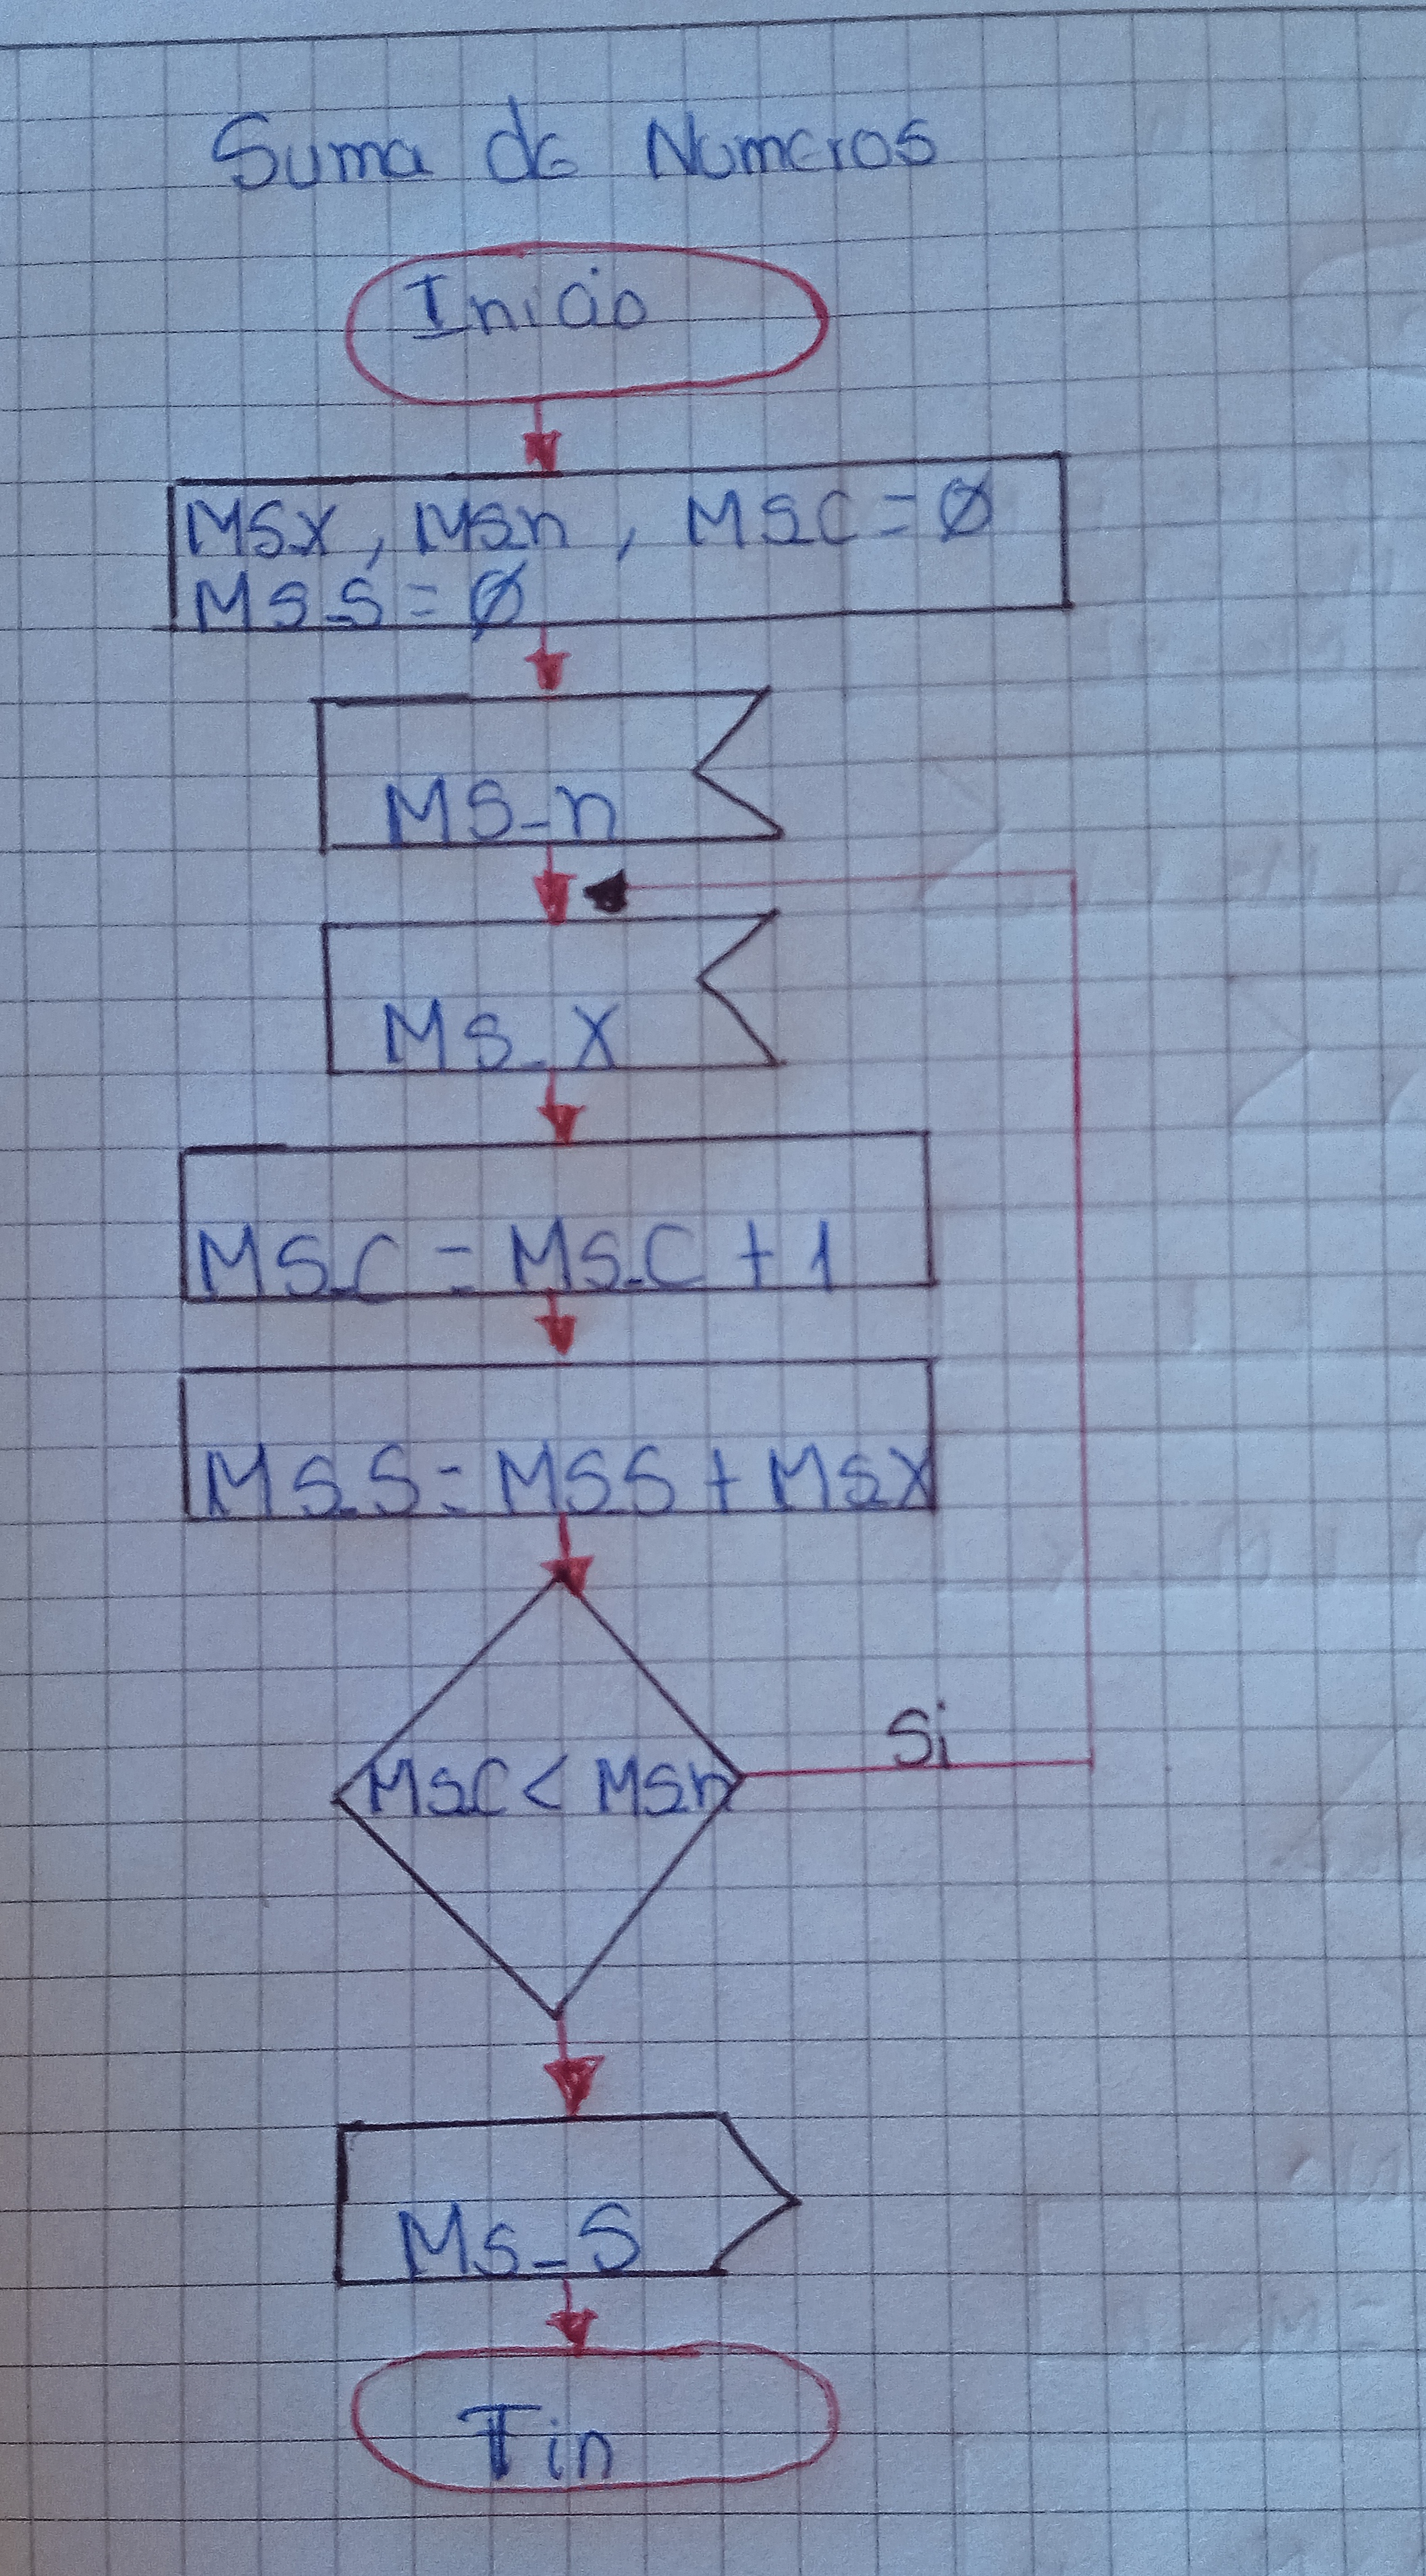 Suma de Numeros
Inicio
MSX, MSn, MSC=Ø
MS_S=Ø
MS_n
MS_X
MS_C = MS_C + 1
MS_S = MSS + MSX
MSC < MSn
Si
MS_S
Fin